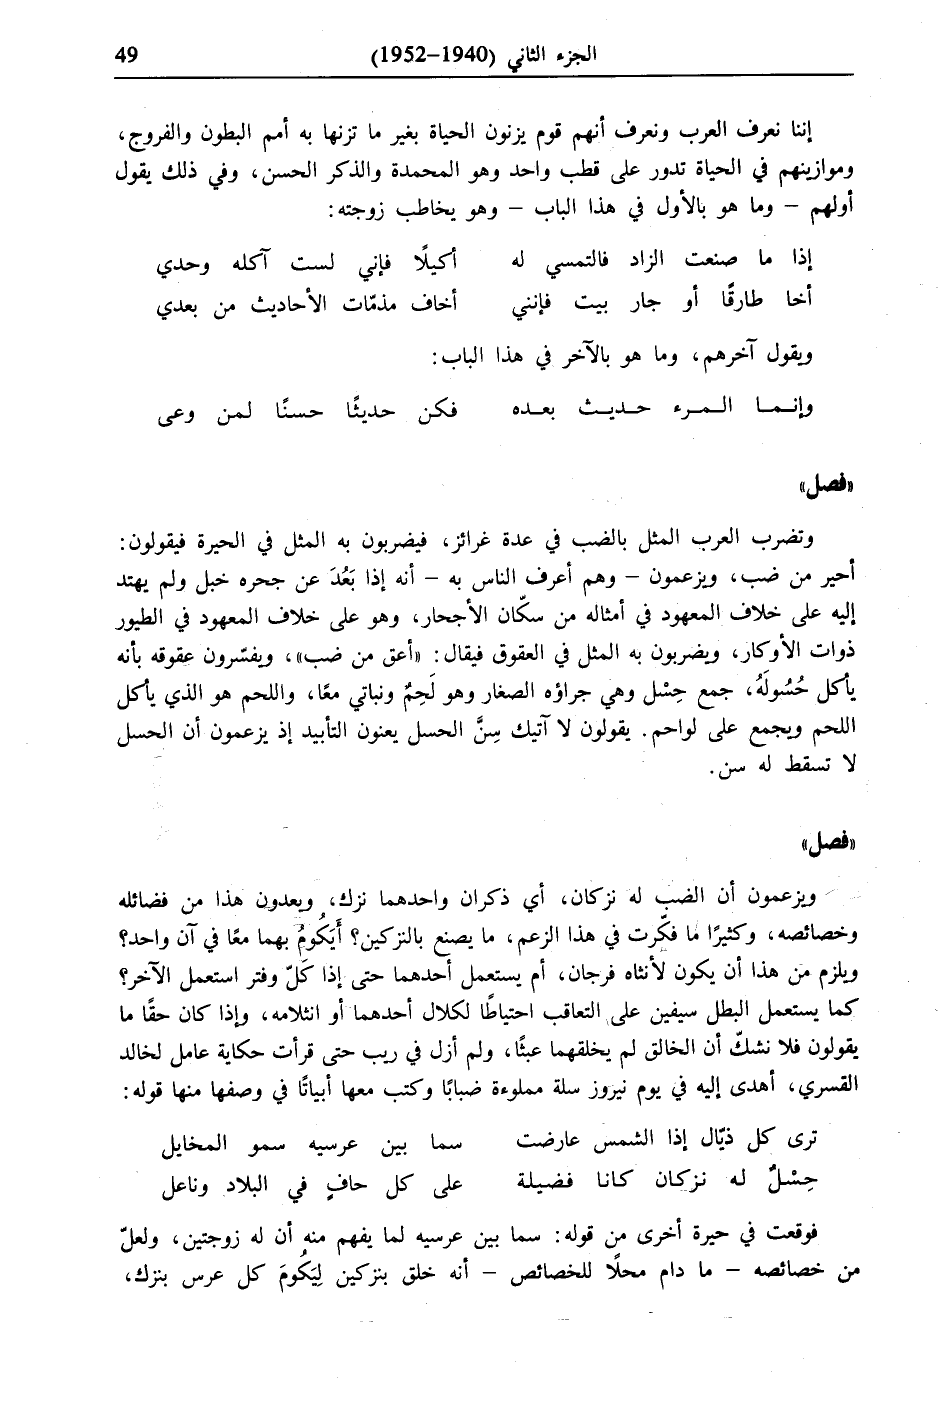 الجزء الثاني (1940-1952) 49
إننا نعرف العرب ونعرف أنهم قوم يزنون الحياة بغير ما تزنها به أمم البطون والفروج،
وموازينهم في الحياة تدور على قطب واحد وهو المحمدة والذكر الحسن، وفي ذلك يقول
أولهم – وما هو بالأول في هذا الباب – وهو يخاطب زوجته:
إذا ما صنعت الزاد فالتمسي له أكيلًا فإني لست آكله وحدي
أخا طارقًا أو جار بيت فإنني أخاف مذمّات الأحاديث من بعدي
ويقول آخرهم، وما هو بالآخر في هذا الباب:
وإنـمـا الـمـرء حـديـث بعـده فكـن حديثًا حسنًا لمـن وعى
«فصل»
وتضرب العرب المثل بالضب في عدة غرائز، فيضربون به المثل في الحيرة فيقولون:
أحير من ضب، ويزعمون – وهم أعرف الناس به – أنه إذا بَعُدَ عن جحره خبل ولم يهتد
إليه على خلاف المعهود في أمثاله من سكّان الأجحار، وهو على خلاف المعهود في الطيور
ذوات الأوكار، ويضربون به المثل في العقوق فيقال: «أعق من ضب»، ويفسّرون عقوقه بأنه
يأكل حُسُولَهُ، جمع حِسْل وهي جراؤه الصغار وهو لَحِمٌ ونباتي معًا، واللحم هو الذي يأكل
اللحم ويجمع على لواحم. يقولون لا آتيك سِنَّ الحسل يعنون التأبيد إذ يزعمون أن الحسل
لا تسقط له سن.
«فصل»
ويزعمون أن الضب له نزكان، أي ذكران واحدهما نزك، ويعدون هذا من فضائله
وخصائصه، وكثيرًا ما فكّرت في هذا الزعم، ما يصنع بالنزكين؟ أَيَكُومُ بهما معًا في آن واحد؟
ويلزم من هذا أن يكون لأنثاه فرجان، أم يستعمل أحدهما حتى إذا كَلّ وفتر استعمل الآخر؟
كما يستعمل البطل سيفين على التعاقب احتياطًا لكلال أحدهما أو انثلامه، وإذا كان حقًا ما
يقولون فلا نشكّ أن الخالق لم يخلقهما عبثًا، ولم أزل في ريب حتى قرأت حكاية عامل لخالد
القسري، أهدى إليه في يوم نيروز سلة مملوءة ضبابًا وكتب معها أبياتًا في وصفها منها قوله:
ترى كل ذيّال إذا الشمس عارضت سما بين عرسيه سمو المخايل
حِسْلٌ له نزكان كانا فضيلة على كل حافٍ في البلاد وناعل
فوقعت في حيرة أخرى من قوله: سما بين عرسيه لما يفهم منه أن له زوجتين، ولعلّ
من خصائصه – ما دام محلًا للخصائص – أنه خلق بنزكين لِيَكُومَ كل عرس بنزك،